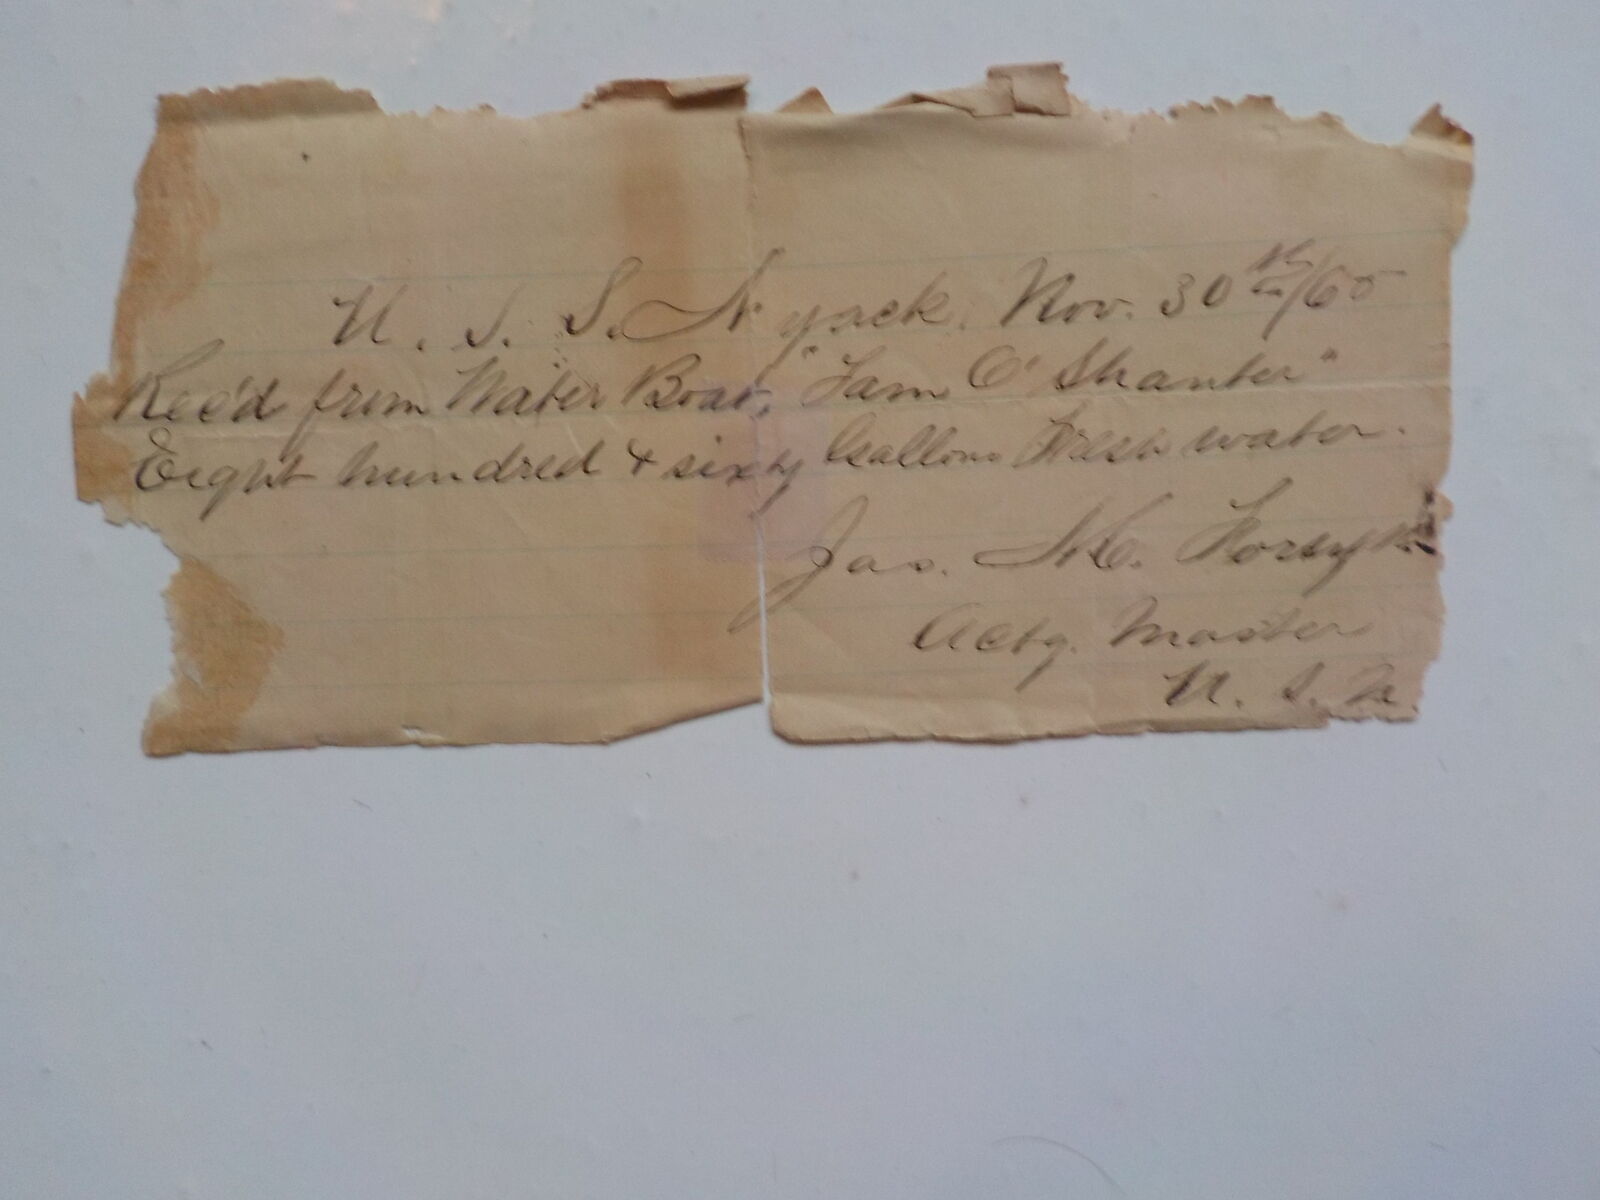 U. S. S. Nyack, Nov. 30th/65
Rec'd from Water Boat, "Tam O' Shanter"
Eight hundred & sixty Gallons Fresh water.
Jas. M. Forsyth
Actg. Master
U. S. N.